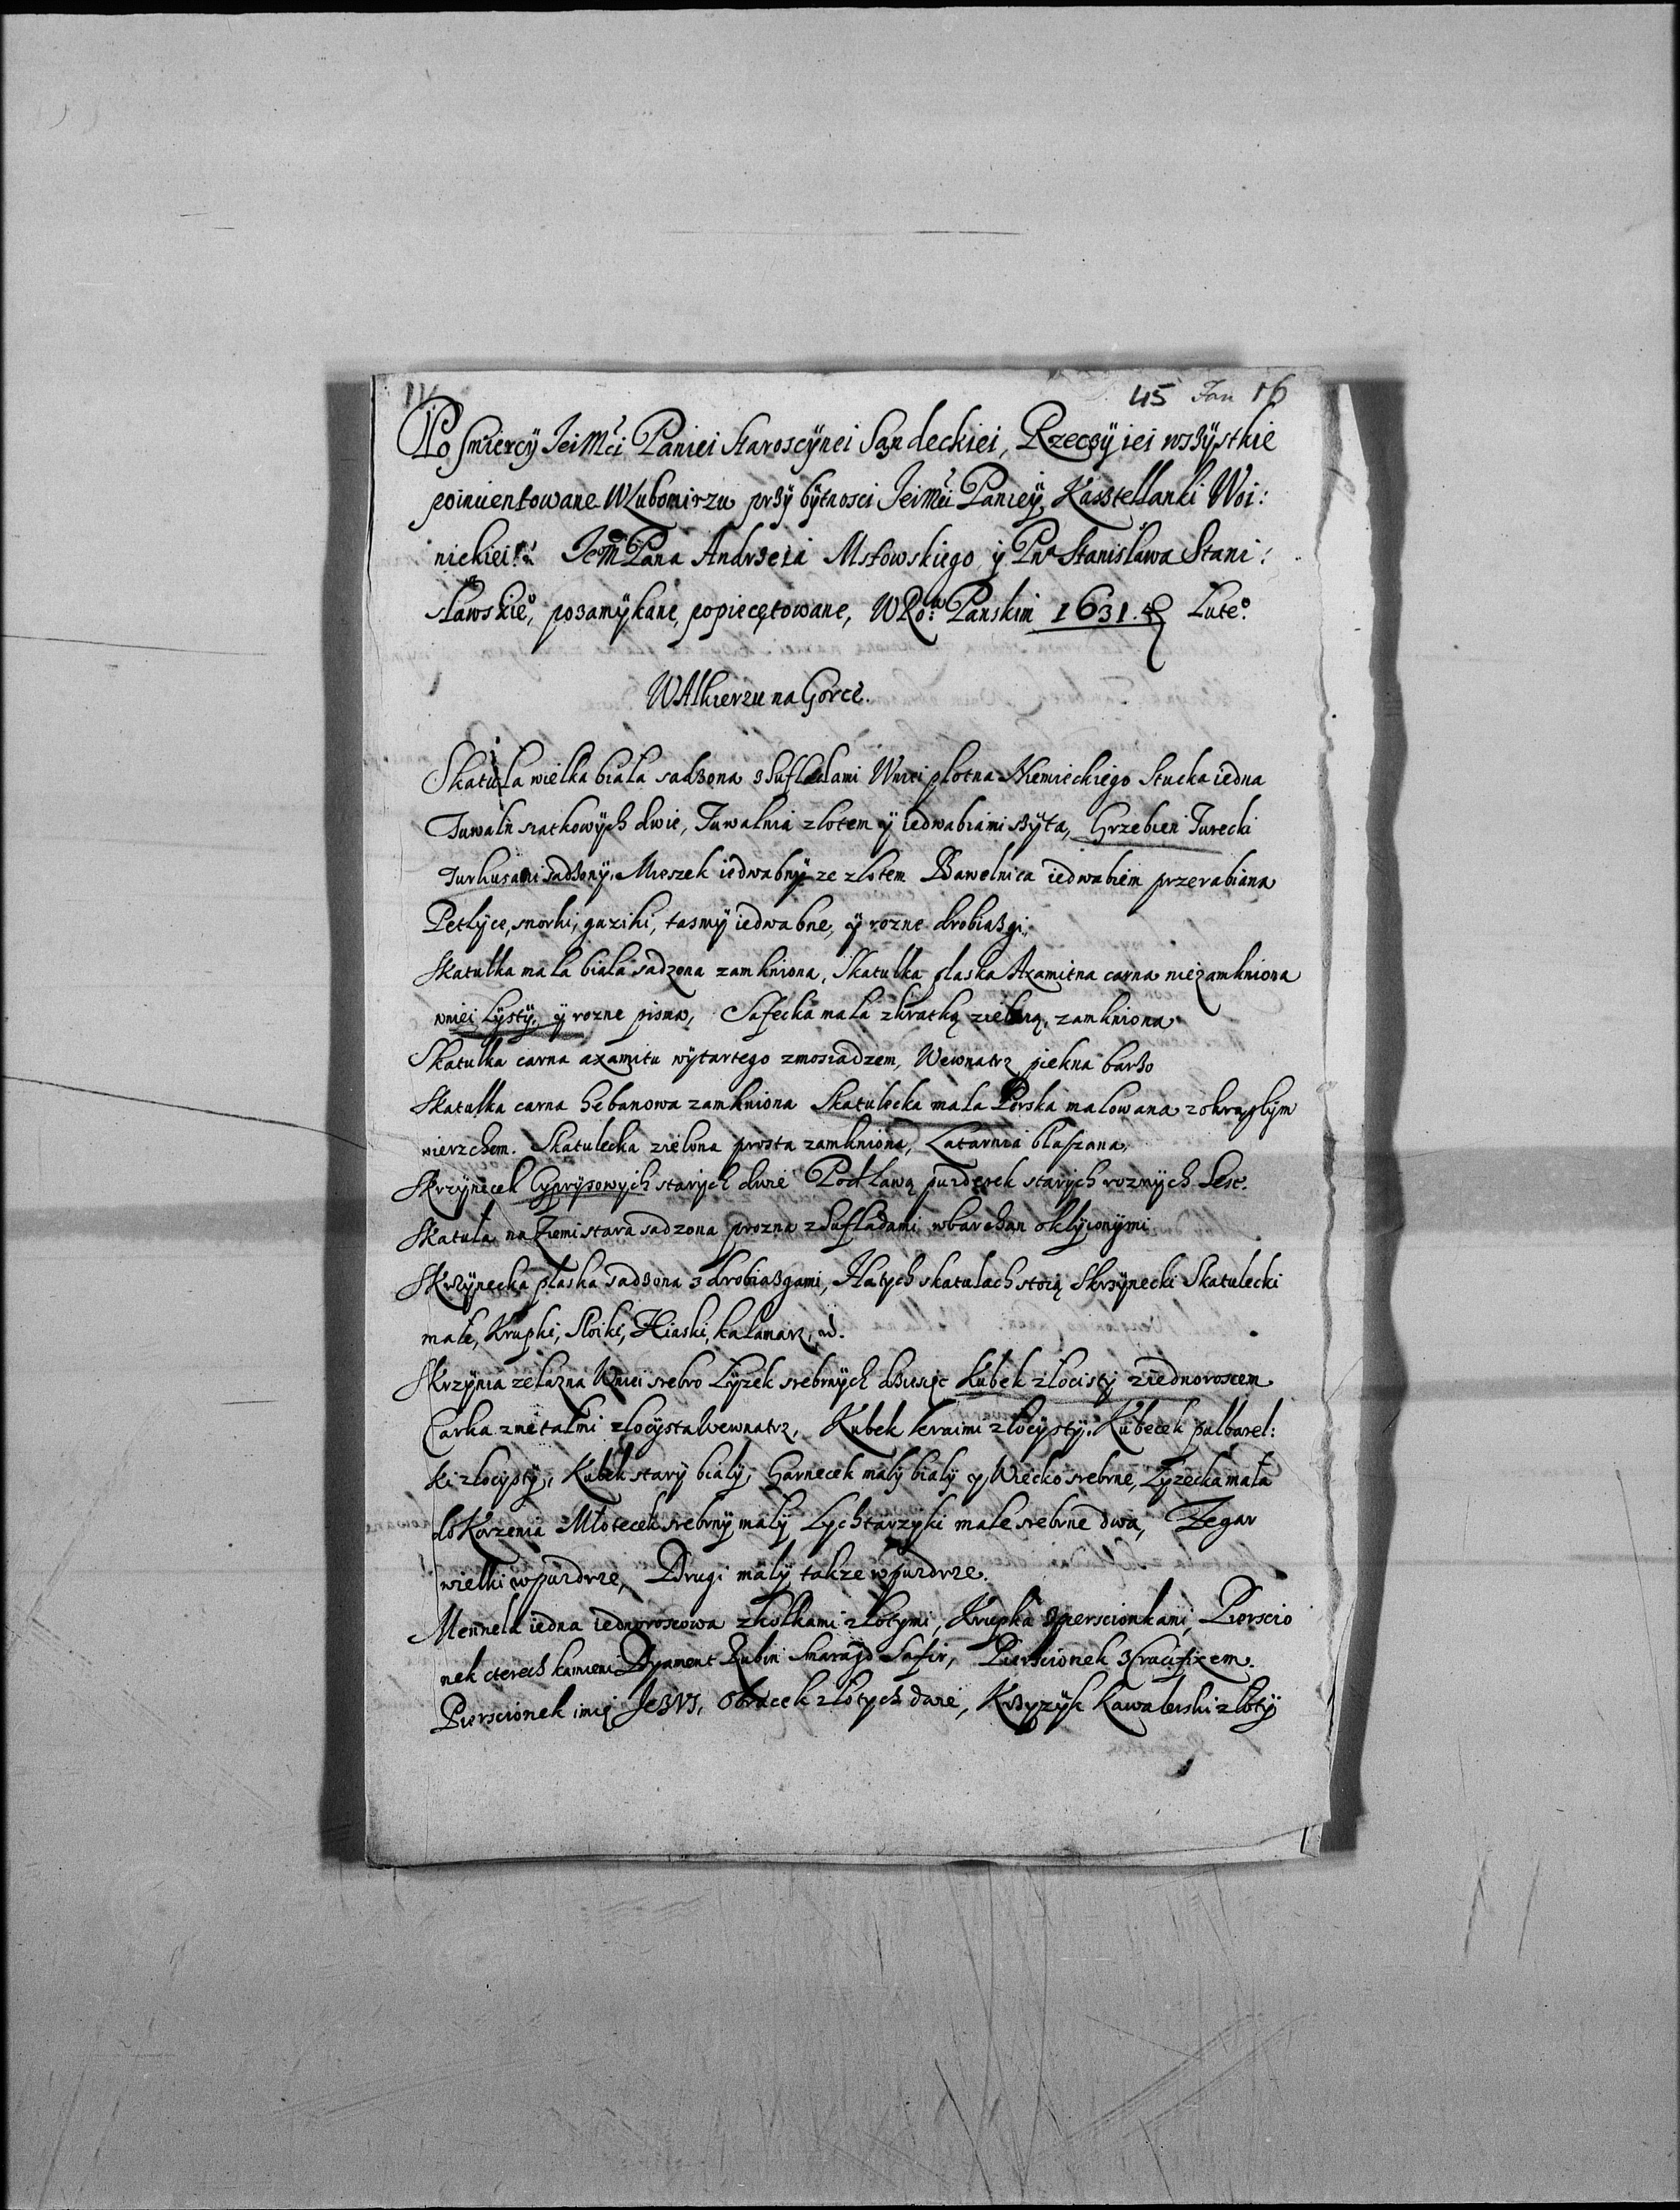 45 Jan 16
Po smiercÿ Jei Mci Paniei Staroscÿnei Sandeckiei, Rzeczÿ iei wszÿstkie
poinuentowane WLubomirzu przÿ bÿtnosci Jei Mci Panieÿ, Kasstellanki Woi:
nickiei: Je M Pana Andrzeia Msłowskiego ÿ Pna Stanisława Stani:
sławskieo, pozamÿkane, popiecętowane, WRo: Panskim 1631. Luteo
WAlkierzu na Gorce.
Skatuła wielka biała sadzona z Sufledami Wniei płotna Niemieckiego Stucka iedna
Tuwaln siatkowÿch dwie, Tuwalnia złotem ÿ iedwabiami szÿta, Grzebien Turecki
Turkusami sadzonÿ, Mieszek iedwabnÿ ze złotem Bawelnica iedwabiem przerabiana
Petlyce, snorki, guziki, tasmÿ iedwabne, ÿ rozne drobiazgi,
Skatułka mała biała sadzona zamkniona, Skatułka płaska Axamitna carna niezamkniona
wniei Lystÿ, ÿ rozne pisma, Safecka mała zkratką zieloną, zamkniona
Skatułka carna axamitu wÿtartego zmosiadzem, Wewnatrz piekna barzo
Skatułka carna hebanowa zamkniona Skatulecka mała Perska malowana zokragłÿm
wierzchem. Skatulecka zielona prosta zamkniona, Latarnia blaszana,
Skrzÿnecek Cyprysowych starÿch dwie Pod Ławą puzderek starÿch roznÿch Sesc.
Skatuła na Ziemi stara sadzona prozna z Sufladami wbarchan oklyionÿmi
Skrzÿnecka płaska sadzona z drobiazgami, Na tych skatułach stoią Skrzÿnecki Skatulecki
małe, Krupki, Słoiki, Fliaski, kałamarz, id.
Skrzÿnia zelazna Wniei srebro Lyzek srebrnÿch dziesięc Kubek złocistÿ ziednoroscem
Carka zmetalmi złocysta Wewnatrz, Kubek kraimi złocystÿ. Kubecek pulbarel:
ki złocystÿ, Kubek starÿ białÿ, Garnecek małÿ biały y Wiecko srebrne, Lyzecka mała
do Korzenia Młotecek srebrnÿ małÿ Lychtarzyki małe srebrne dwa, Zegar
wielki wpuzdrze, Drugi małÿ takze wpuzdrze.
Mennela iedna iednoroscowa zkołkami złotymi, Krupka zpierscionkami, Pierscio
nek cterech kamieni Dyament Rubin Smaragd Safir, Pierscionek z Crucifixem.
Pierscionek imię JeZVS, Obrącek złotych dwie, Krzyzÿk Kawalerski złotÿ